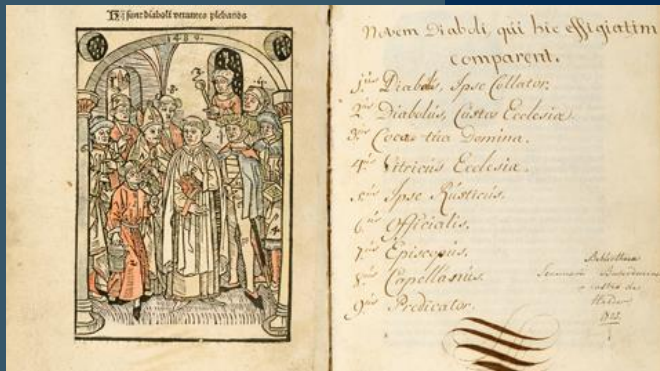 Hi sunt diaboli vexantes plebanos
1489
Novem Diaboli, qui hic effigiatim
comparent.
1us Diabolus, Ipse Collator.
2us Diabolus, Custos Ecclesiæ.
3us Coca tua Domina.
4us Vitricus Ecclesiæ.
5us Ipse Rústicus.
6us Officialis.
7us Episcopús.
8us Capellanús.
9us Predicator.
Bibliotheca